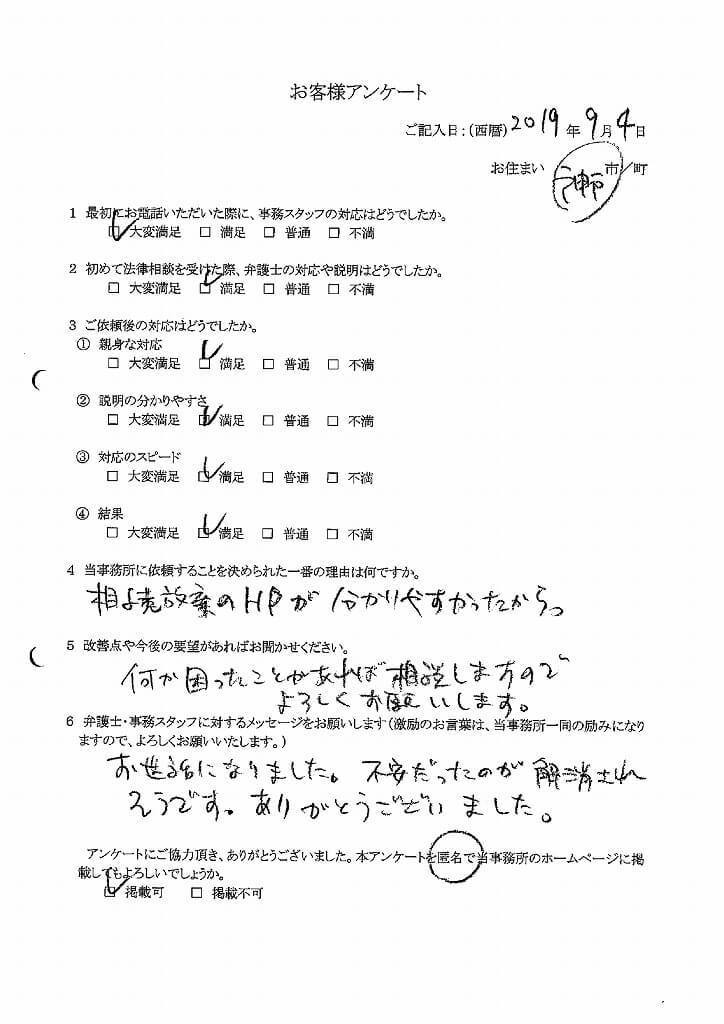 お客様アンケート
ご記入日:(西暦)2019年9月4日
お住まい 市/町
1 最初にお電話いただいた際に、事務スタッフの対応はどうでしたか。
☑ 大変満足 □ 満足 □ 普通 □ 不満
2 初めて法律相談を受けた際、弁護士の対応や説明はどうでしたか。
□ 大変満足 ☑ 満足 □ 普通 □ 不満
3 ご依頼後の対応はどうでしたか。
① 親身な対応
□ 大変満足 ☑ 満足 □ 普通 □ 不満
② 説明の分かりやすさ
□ 大変満足 ☑ 満足 □ 普通 □ 不満
③ 対応のスピード
□ 大変満足 ☑ 満足 □ 普通 □ 不満
④ 結果
□ 大変満足 ☑ 満足 □ 普通 □ 不満
4 当事務所に依頼することを決められた一番の理由は何ですか。
相続放棄のHPが分かりやすかったから。
5 改善点や今後の要望があればお聞かせください。
何か困ったことがあれば相談しますので
よろしくお願いします。
6 弁護士・事務スタッフに対するメッセージをお願いします(激励のお言葉は、当事務所一同の励みになり
ますので、よろしくお願いいたします。)
お世話になりました。不安だったのが解消され
そうです。ありがとうございました。
アンケートにご協力頂き、ありがとうございました。本アンケートを匿名で当事務所のホームページに掲
載してもよろしいでしょうか。
☑ 掲載可 □ 掲載不可